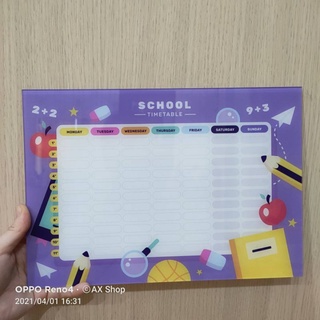 SCHOOL
TIMETABLE
2+2
9+3
MONDAY TUESDAY WEDNESDAY THURSDAY FRIDAY SATURDAY SUNDAY
OPPO Reno4 · ©AX Shop
2021/04/01 16:31